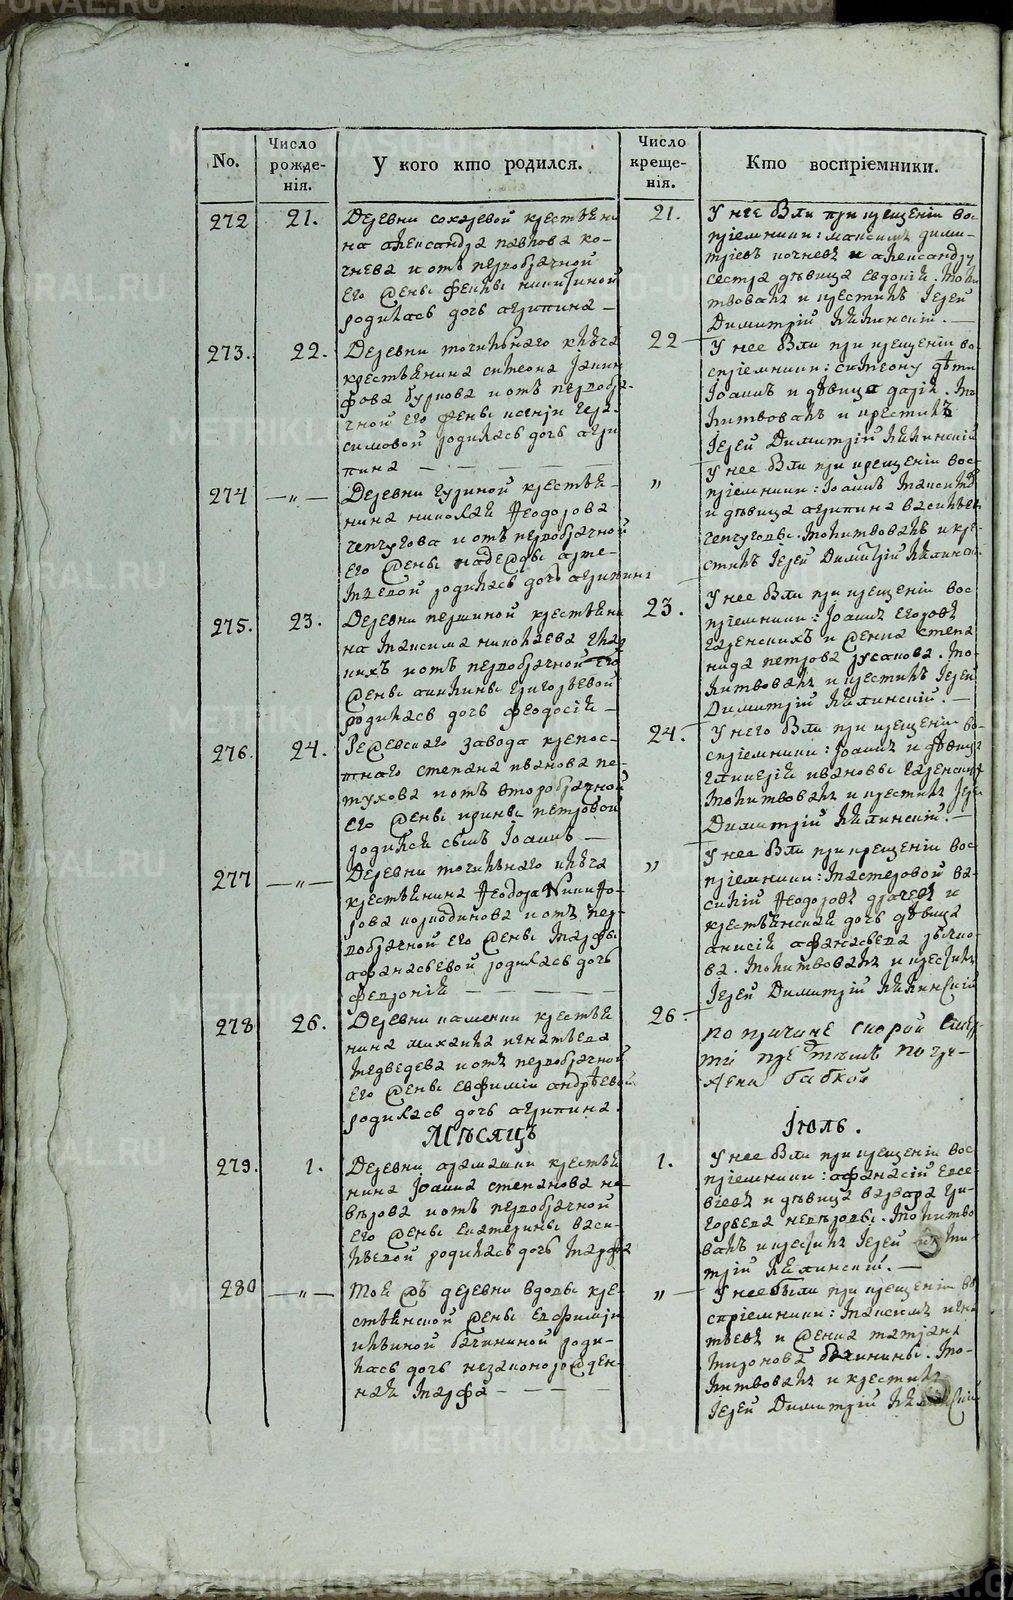 No.
Число рожденія.
У кого кто родился.
Число крещенія.
Кто воспріемники.
272
21.
Деревни сохаревой крестьяни
на александра павлова ко-
чнева и отъ первобрачной
его жены феклы никитиной
родилась дочь агрипина —
21.
У нее были при крещеніи вос
пріемники: максимъ дими-
тріевъ кочневъ и александру
сестра дѣвица евдокія. моли
твовалъ и крестилъ Іерей
Димитрій
273.
22.
Деревни точильнаго ключа
крестьянина симеона
буркова и отъ первобра-
чной его жены ксеніи гера-
симовой родилась дочь агри
пина —
22
У нее были при крещеніи во-
спріемники: симеону дѣти
Іоаннъ и дѣвица дарія. мо
литвовалъ и крестилъ
Іерей Димитрій
274
— „ —
Деревни гуриной крестья-
нина николая Феодорова
чепчугова и отъ первобрачной
его жены надежды арте-
мьевой родилась дочь агрипина
„
У нее были при крещеніи вос-
пріемники: Іоаннъ
и дѣвица агрипина васильева
чепчуговы. молитвовалъ и кре-
стилъ Іерей Димитрій
275.
23.
Деревни першиной крестьяни
на максима николаева
нихъ и отъ первобрачной его
жены акилины григорьевой
родилась дочь феодосія —
23.
У нее были при крещеніи вос
пріемники: Іоаннъ Егоровъ
и женка степа
нида петрова русакова. мо-
литвовалъ и крестилъ Іерей
Димитрій
276.
24.
Режевскаго завода крѣпос-
тнаго степана иванова пе-
тухова и отъ второбрачной
его жены ирины петровой
родился сынъ Іоаннъ —
24.
У него были при крещеніи во-
спріемники: Іоаннъ и дѣвица
гликерія ивановы
молитвовалъ и крестилъ Іерей
Димитрій
277
— „ —
Деревни точильнаго ключа
крестьянина Феодора Никифо-
рова колмодинова и отъ пер-
вобрачной его жены марфы
афанасьевой родилась дочь
февронія —
„
У нее были при крещеніи вос
пріемники: мастеровой ва-
силій Феодоровъ и
крестьянская дочь дѣвица
анисія афанасьева
ва. молитвовалъ и крестилъ
Іерей Димитрій
278
26.
Деревни каменки крестья
нина михаила игнатьева
медведева и отъ первобрачной
его жены евфиміи андреевой
родилась дочь агрипина.
26.
по причине скорой смер
ти крещенъ погру-
жена бабкой
Мѣсяцъ
Іюль.
279.
1.
Деревни арамашки крестья
нина Іоанна степанова не-
вѣрова и отъ первобрачной
его жены екатерины васи-
льевой родилась дочь марфа
1.
У нее были при крещеніи вос
пріемники: афанасій евсе-
віевъ и дѣвица варвара гри-
горьева невѣровы. молитво
валъ и крестилъ Іерей Дими-
трій
280
— „ —
Той жъ деревни вдовы кре-
стьянской жены евфиміи
ильиной бачининой роди-
лась дочь незаконорожден-
ная марфа —
„
У нее были при крещеніи во
спріемники: максимъ игна
тьевъ и женка татьяна
миронова бачинины. мо-
литвовалъ и крестилъ
Іерей Димитрій